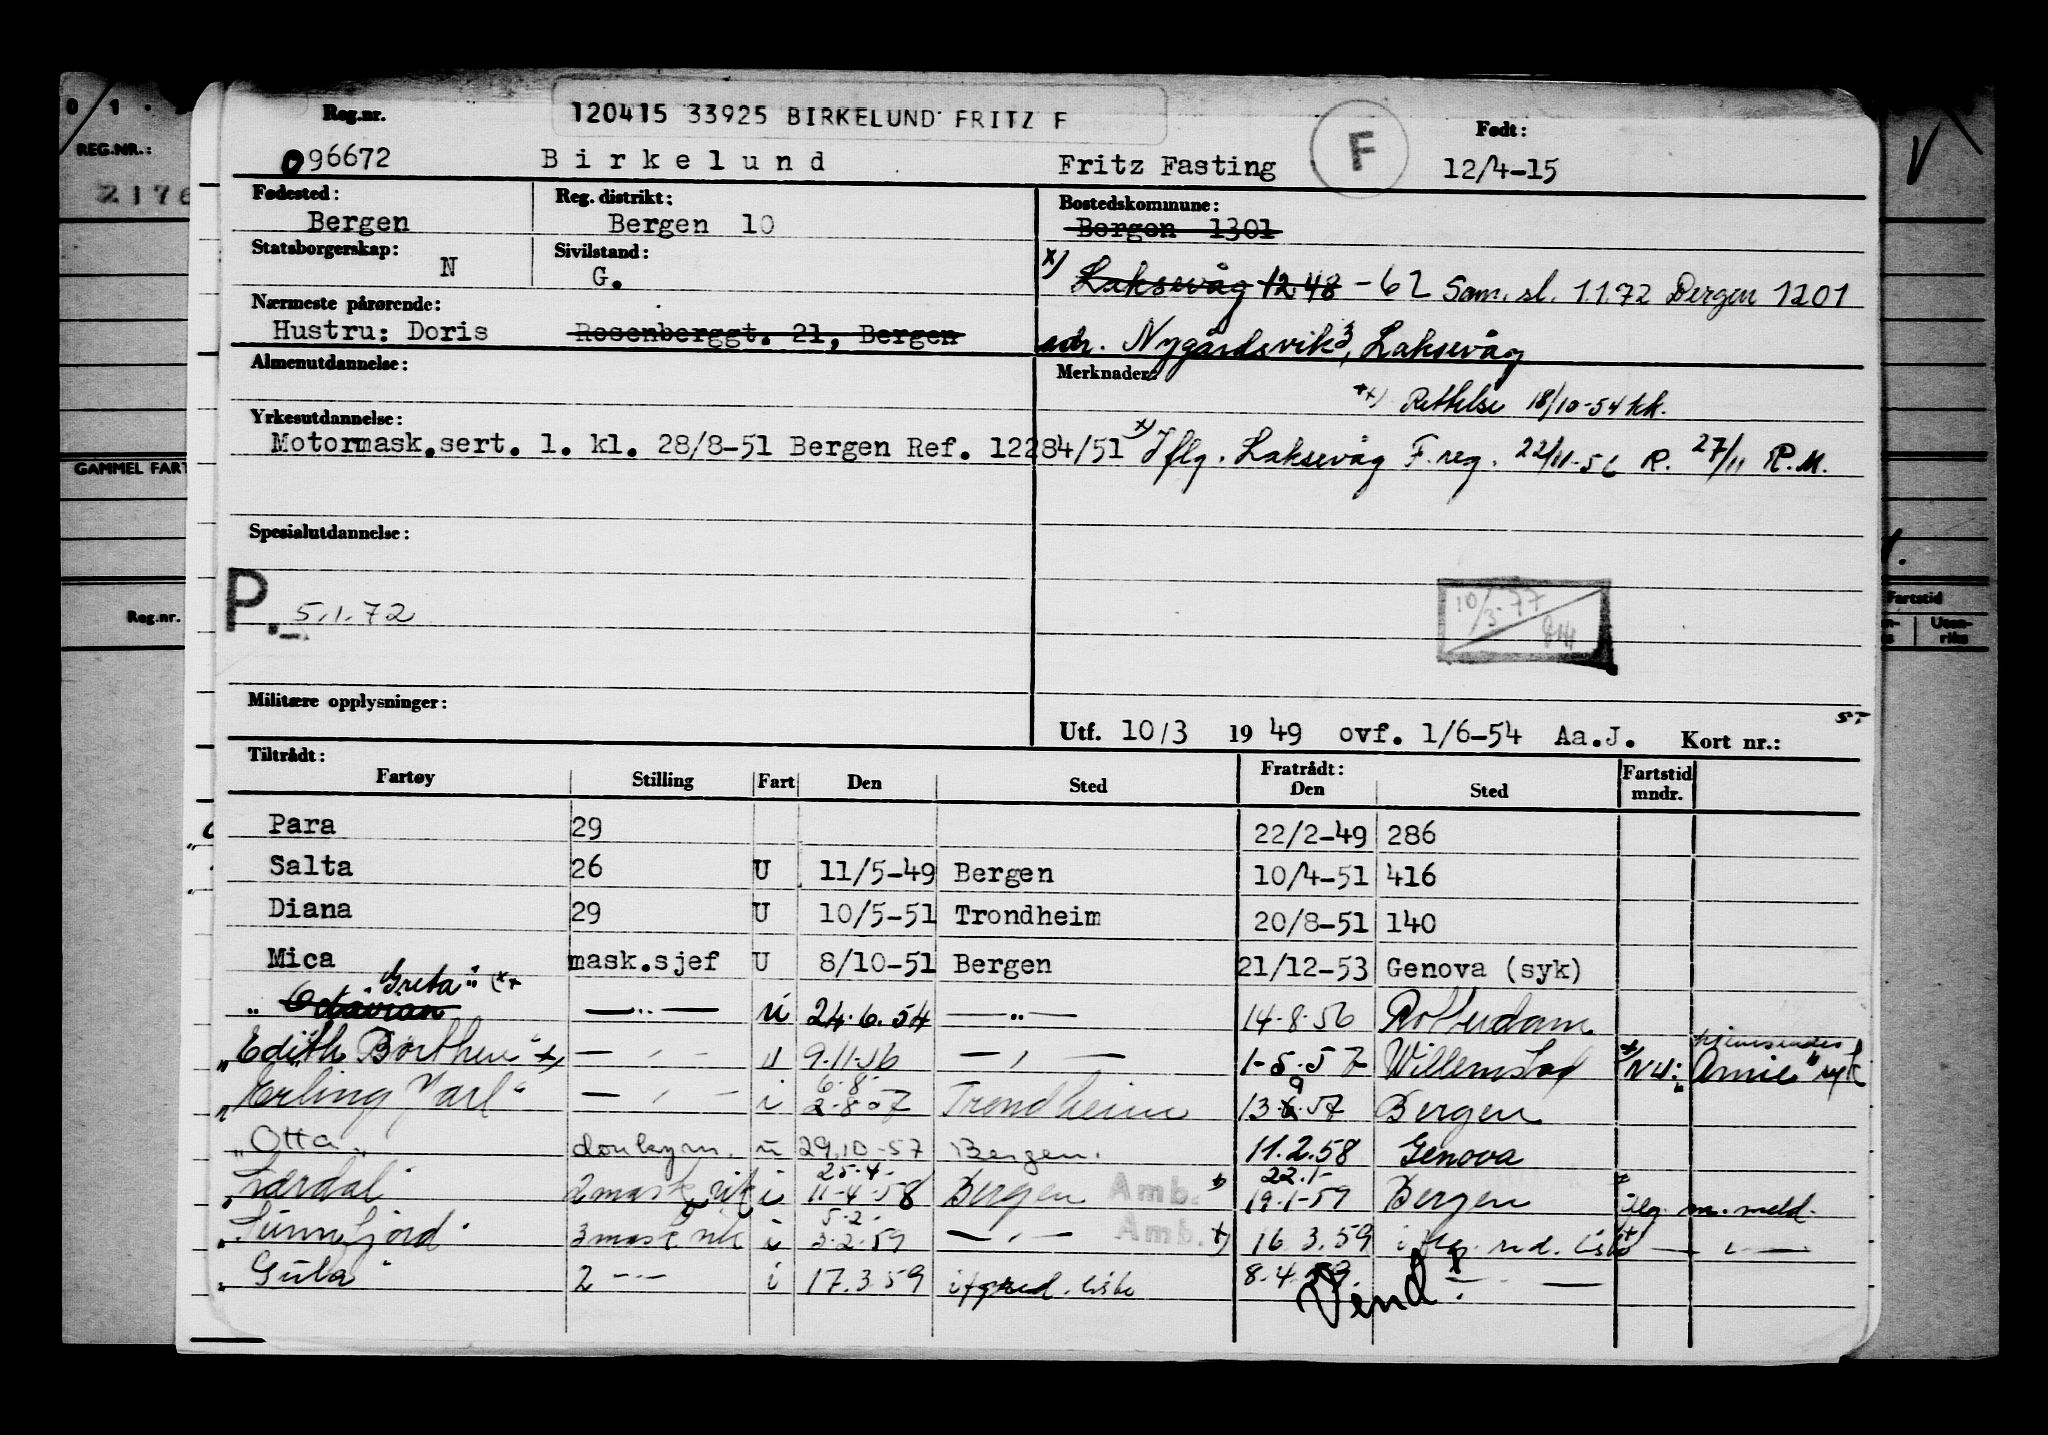 120415 33925 BIRKELUND FRITZ F
Reg.nr. Født:
096672 Birkelund Fritz Fasting F 12/4-15
Fødested: Reg. distrikt: Bostedskommune:
Bergen Bergen 10 Bergen 1301
Statsborgerskap: Sivilstand:
N G. x) Laksevåg 1248 - 62 Sam. sl. 1.1.72 Bergen 1201
Nærmeste pårørende:
Hustru: Doris Rosenberggt. 21, Bergen adr. Nygårdsvik 3, Laksevåg
Almenutdannelse: Merknader:
xx) Rettelse 18/10-54 kk.
Yrkesutdannelse:
Motormask.sert. 1. kl. 28/8-51 Bergen Ref. 12284/51 x) Iflg. Laksevåg F.reg. 22/11-56 R. 27/11 R.M.
Spesialutdannelse:
P. 5.1.72
10/3-77
Militære opplysninger:
Utf. 10/3 1949 ovf. 1/6-54 Aa.J. Kort nr.:
Tiltrådt: Fratrådt:
Fartøy Stilling Fart Den Sted Den Sted Fartstid mndr.
Para 29 22/2-49 286
Salta 26 U 11/5-49 Bergen 10/4-51 416
Diana 29 U 10/5-51 Trondheim 20/8-51 140
Mica mask.sjef U 8/10-51 Bergen 21/12-53 Genova (syk)
Greta" (xx
" Octavian — " — u 24.6.54 — " — 14-8-56 Rotterdam
"Edith Borthen" x) — " — u 9.11.56 — " — 1-5-57 Willemstad x) Nu: "Anne" syk
6-8-
"Erling Jarl" — " — i 2-8-57 Trondheim 13.9.57 Bergen
"Otta" donkym. u 29.10-57 Bergen. 11.2.58 Genova
25-4- 22.1-
"Lærdal" 2 mask i 11-4-58 Bergen Amb. x) 19.1-59 Bergen x) Iflg. m. meld.
5-2-
"Sunnfjord" 3 mask i 3-2-59 — " — Amb. x) 16.3.59 liste — " —
"Gula" 2 — " — i 17.3.59 liste 8-4-59 — " —
Vend!
REG.NR.:
GAMMEL FART
Reg.nr.
Fartstid
Uten-
riks